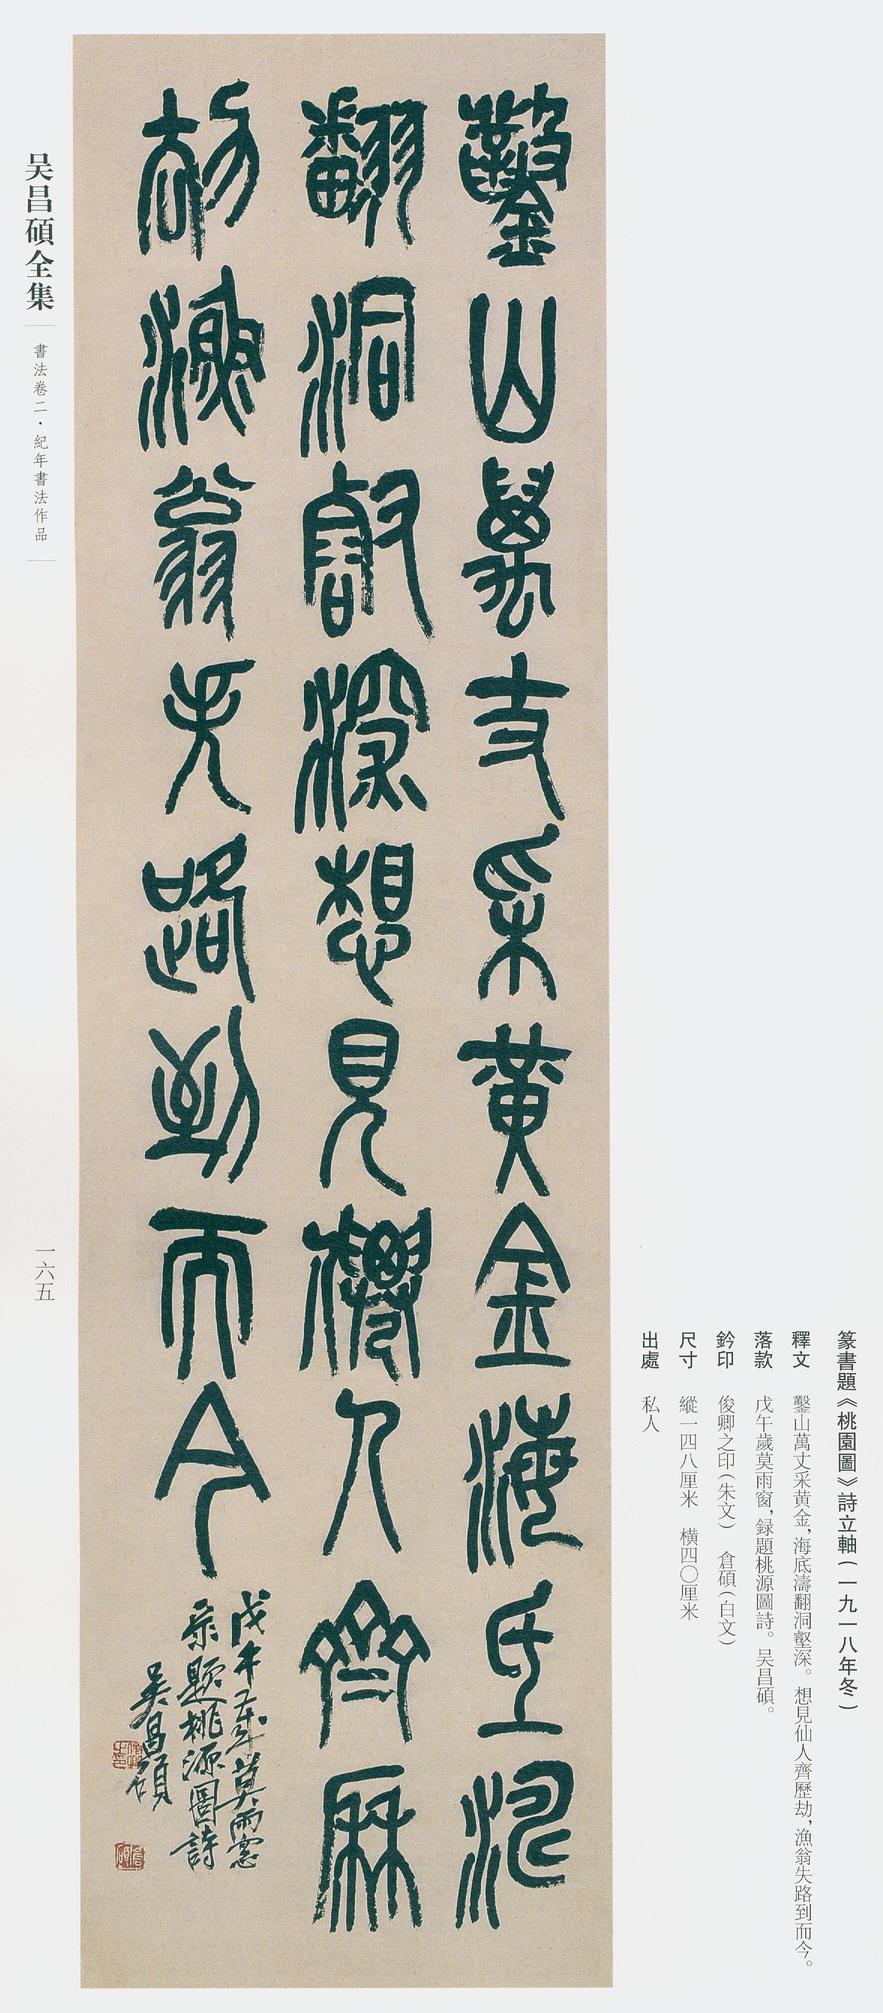 篆書題《桃園圖》詩立軸(一九一八年冬)
釋文 鑿山萬丈采黄金,海底濤翻洞壑深。想見仙人齊歷劫,漁翁失路到而今。
落款 戊午歲莫雨窗,録題桃源圖詩。吴昌碩。
鈐印 俊卿之印(朱文) 倉碩(白文)
尺寸 縱一四八厘米 橫四〇厘米
出處 私人
鑿山萬丈采黄金海底濤
翻洞壑深想見仙人齊歷
劫漁翁失路到而今
戊午歲莫雨窗
录題桃源圖詩
吴昌碩
俊卿之印
倉碩
吴昌碩全集
書法卷二·紀年書法作品
一六五